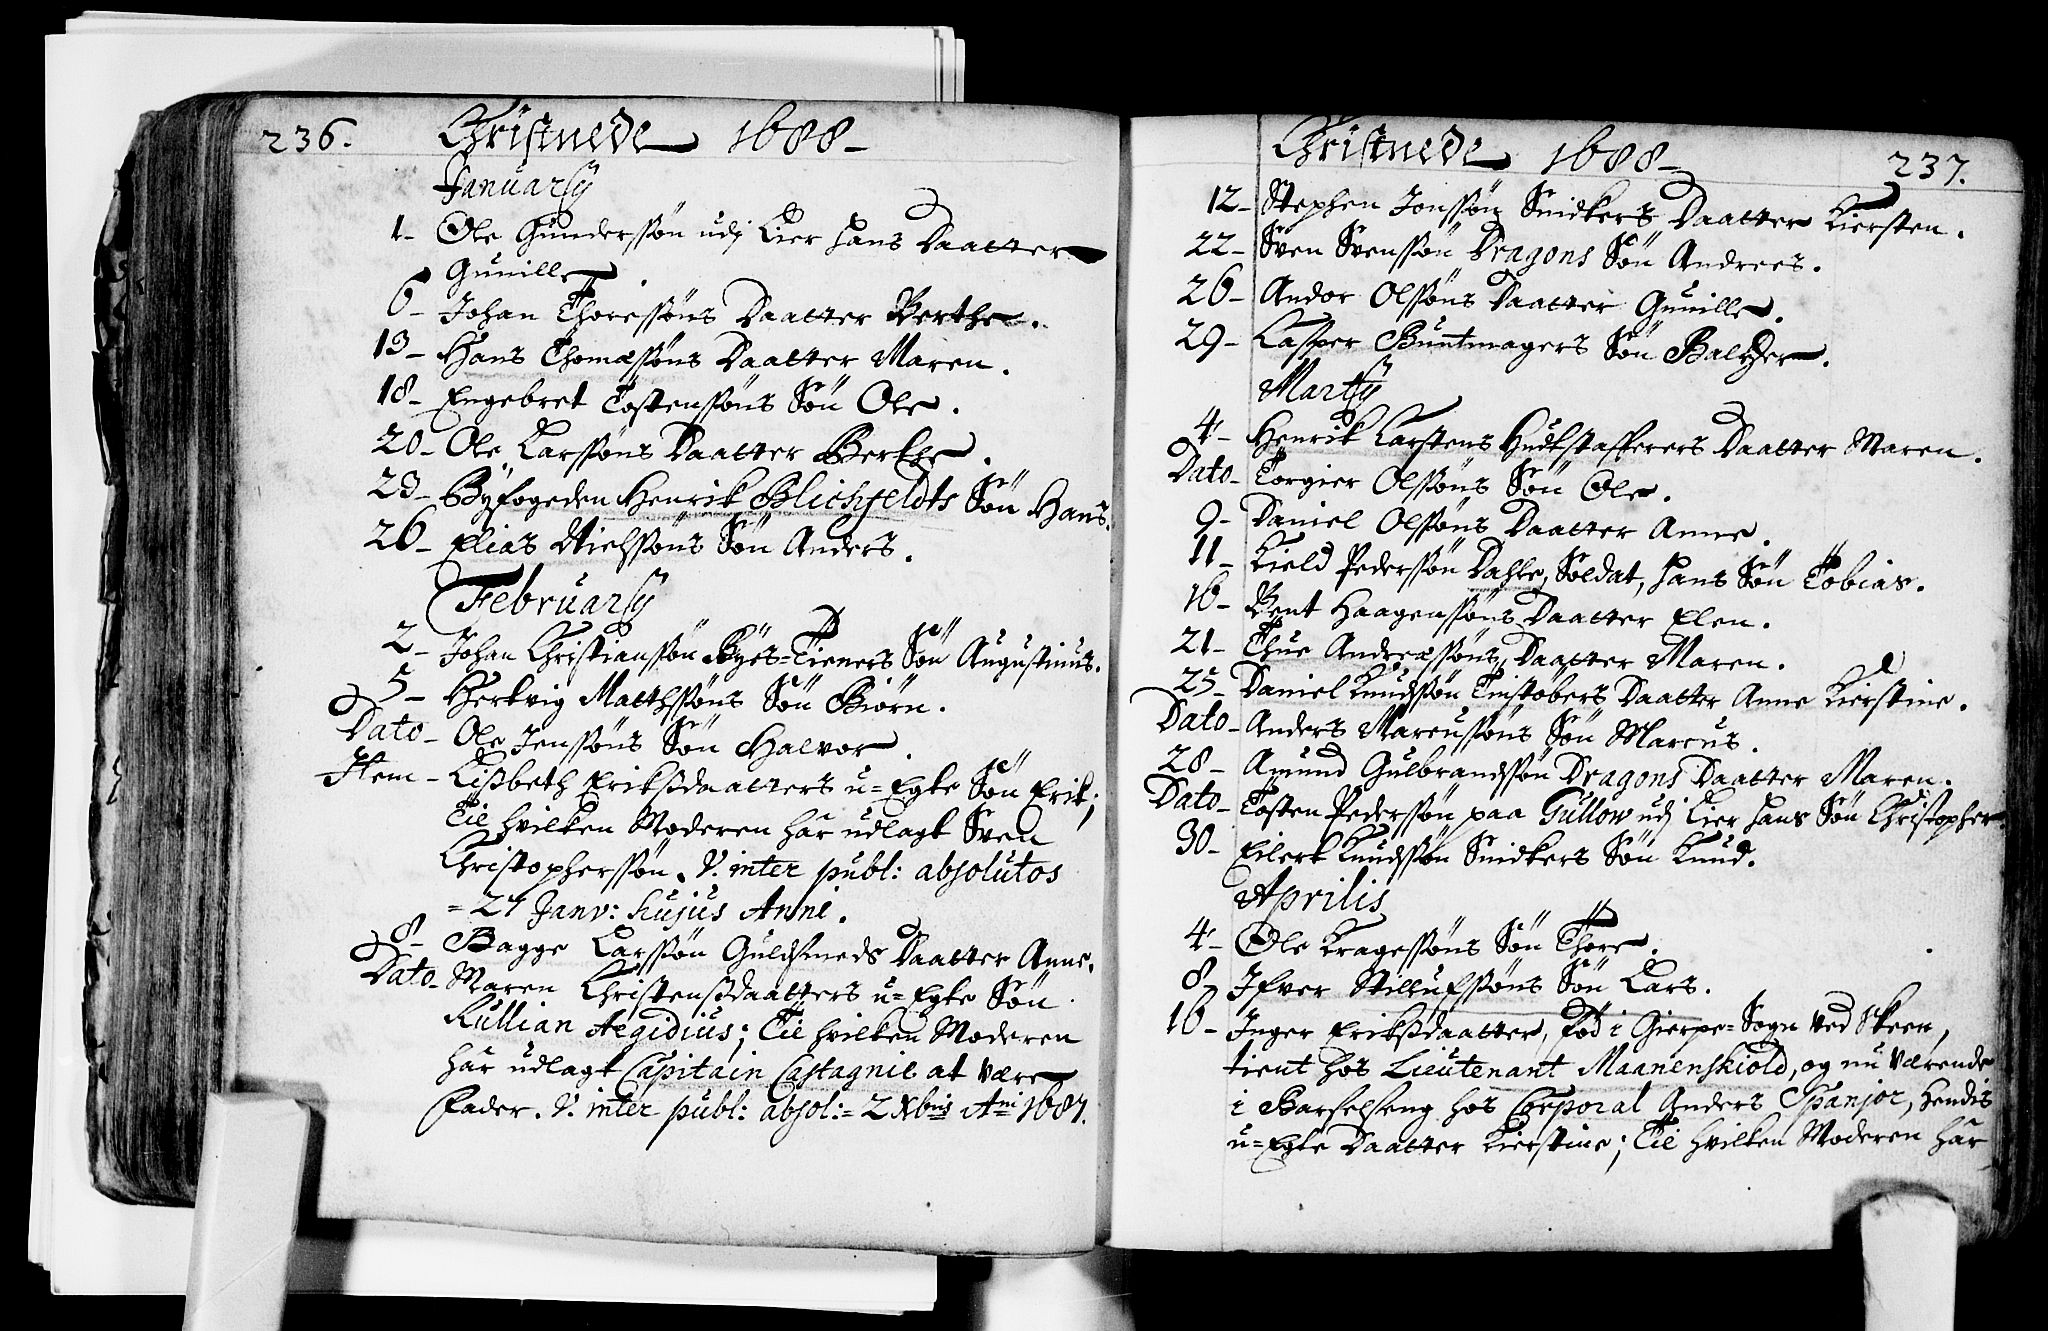 236.
Christnede 1688-
Januarij
1- Ole Gunderssøn udj Lier hans Daatter
Gunille.
6- Johan Thoressøns Daatter Berthe.
13- Hans Thomæssøns Daatter Maren.
18- Engebret Tostenssøns Søn Ole.
20- Ole Larssøns Daatter Berte.
23- Byfogeden Henrik Blichfeldts Søn Hans.
26- Elias Nielssøns Søn Anders.
Februarij
2- Johan Christianssøn Byes=Tieners Søn Augustinus.
5- Hertvig Matthssøns Søn Biørn.
Dato- Ole Jenssøns Søn Halvor.
Item- Lisbeth Eriksdaatters u=Egte Søn Erik;
Til hvilken Moderen har udlagt Sven
Christopherssøn. V. inter publ: absolutos
=24 Janv: hujus Anni.
8- Bagge Larssøn Guldsmeds Daatter Anne.
Dato- Maren Christensdaatters u=Egte Søn
Kullian Aegidius; Til hvilken Moderen
har udlagt Capitain Castagnie at være
Fader. V. inter publ: absol:= 2 Xbris Ani 1687.
Christnede 1688-
237.
12- Stephen Jonssøn Snidkers Daatter Kiersten.
22- Sven Svenssøn Dragons Søn Andrees.
26- Andor Olssøns Daatter Gunille.
29- Casper Buntmagers Søn Baltzer.
Martij
4- Henrik Carstens Hudtstafferers Daatter Maren.
Dato- Torgier Olssøns Søn Ole.
9- Daniel Olssøns Daatter Anne.
11- Kield Pederssøn Dahle, Soldat, hans Søn Tobias.
16- Bent Haagenssøns Daatter Elen.
21- Thue Andreæssøns Daatter Maren.
25- Daniel Knudssøn Tinstøbers Daatter Anne Kierstine.
Dato- Anders Marcussøns Søn Marcus.
28- Amund Gulbrandssøn Dragons Daatter Maren.
Dato- Tosten Pederssøn paa Gullow udj Lier hans Søn Christopher
30- Eilert Knudssøn Snidkers Søn Knud.
Aprilis
4- Ole Kragessøns Søn Thore.
8- Ifver Stillufssøns Søn Lars.
16- Inger Eriksdaatter, Fød i Gierpe=Sogn ved Skeen,
tient hos Lieutenant Maanenskiold, og nu værende
i Barselseng hos Corporal Anders Spanjor, hendis
u=Egte Daatter Kierstine; Til hvilken Moderen har